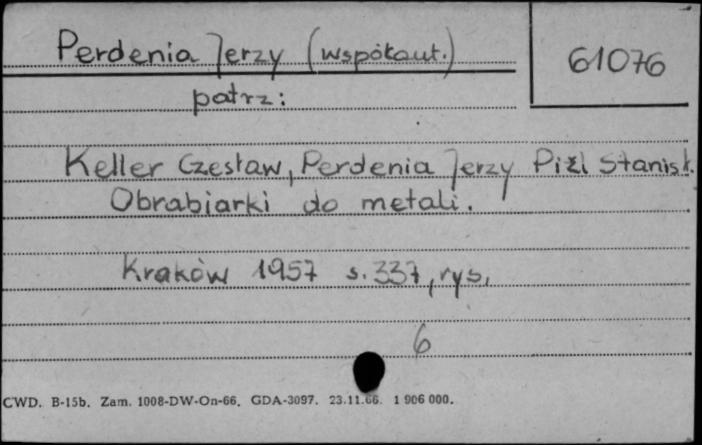 Perdenia Jerzy (współaut.)
61076
patrz:
Keller Czesław, Perdenia Jerzy Piżl Stanisł.
Obrabiarki do metali.
Kraków 1957 s. 337, rys.
6
CWD. B-15b. Zam. 1008-DW-On-66. GDA-3097. 23.11.66. 1 906 000.